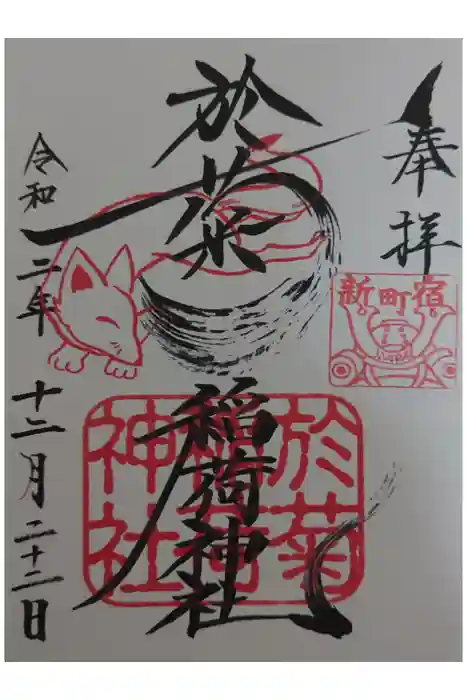 奉拝
新町宿
於菊
稲荷神社
於菊
稲荷
神社
令和二年十二月二十二日